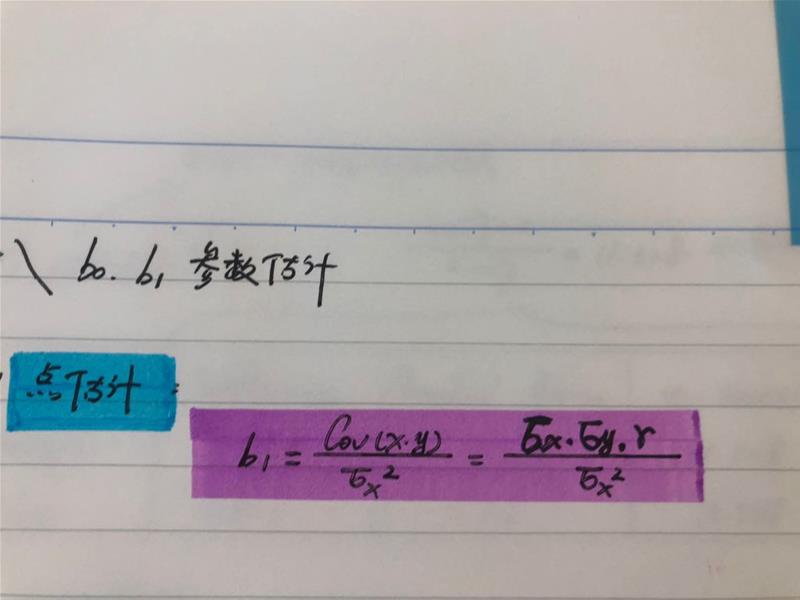 八 b₀. b₁ 参数估计
点估计:
b₁ = Cov(x.y)/σx² = σx.σy.r/σx²